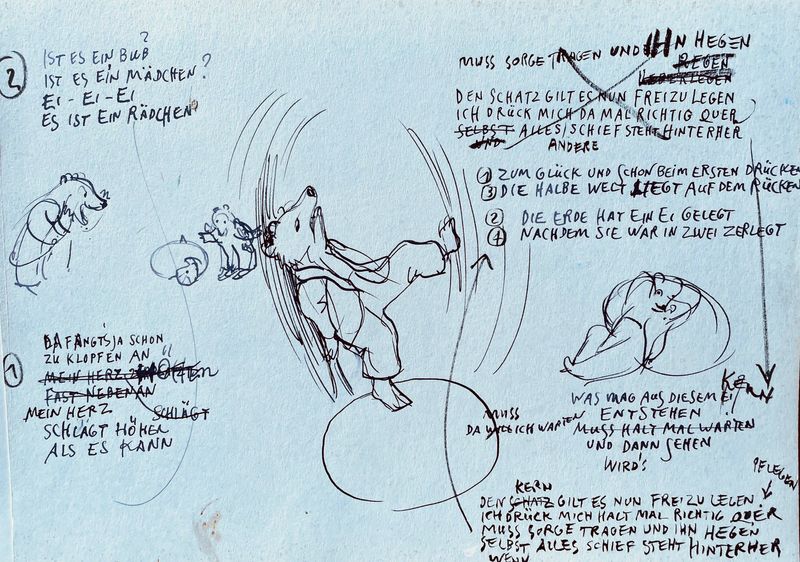 2
IST ES EIN BUB?
IST ES EIN MÄDCHEN?
EI - EI - EI
ES IST EIN RÄDCHEN
1
DA FÄNGT'S JA SCHON
ZU KLOPFEN AN
MEIN HERZ
FAST NEBENAN
MEIN HERZ SCHLÄGT
SCHLÄGT HÖHER
ALS ES KANN
MUSS SORGE TRAGEN UND IHN HEGEN
REGEN
ÜBERLEGEN
DEN SCHATZ GILT ES NUN FREIZULEGEN
ICH DRÜCK MICH DA MAL RICHTIG QUER
SELBST ALLES SCHIEF STEHT HINTERHER
UND ANDERE
1 ZUM GLÜCK UND SCHON BEIM ERSTEN DRÜCKEN
3 DIE HALBE WELT LIEGT AUF DEM RÜCKEN
2 DIE ERDE HAT EIN EI GELEGT
4 NACHDEM SIE WAR IN ZWEI ZERLEGT
KERN
WAS MAG AUS DIESEM EI
ENTSTEHEN
MUSS
DA WILL ICH WARTEN
MUSS HALT MAL WARTEN
UND DANN SEHEN
WIRD'S
PFLEGEN
KERN
DEN SCHATZ GILT ES NUN FREIZULEGEN
ICH DRÜCK MICH HALT MAL RICHTIG QUER
MUSS SORGE TRAGEN UND IHN HEGEN
SELBST ALLES SCHIEF STEHT HINTERHER
WENN